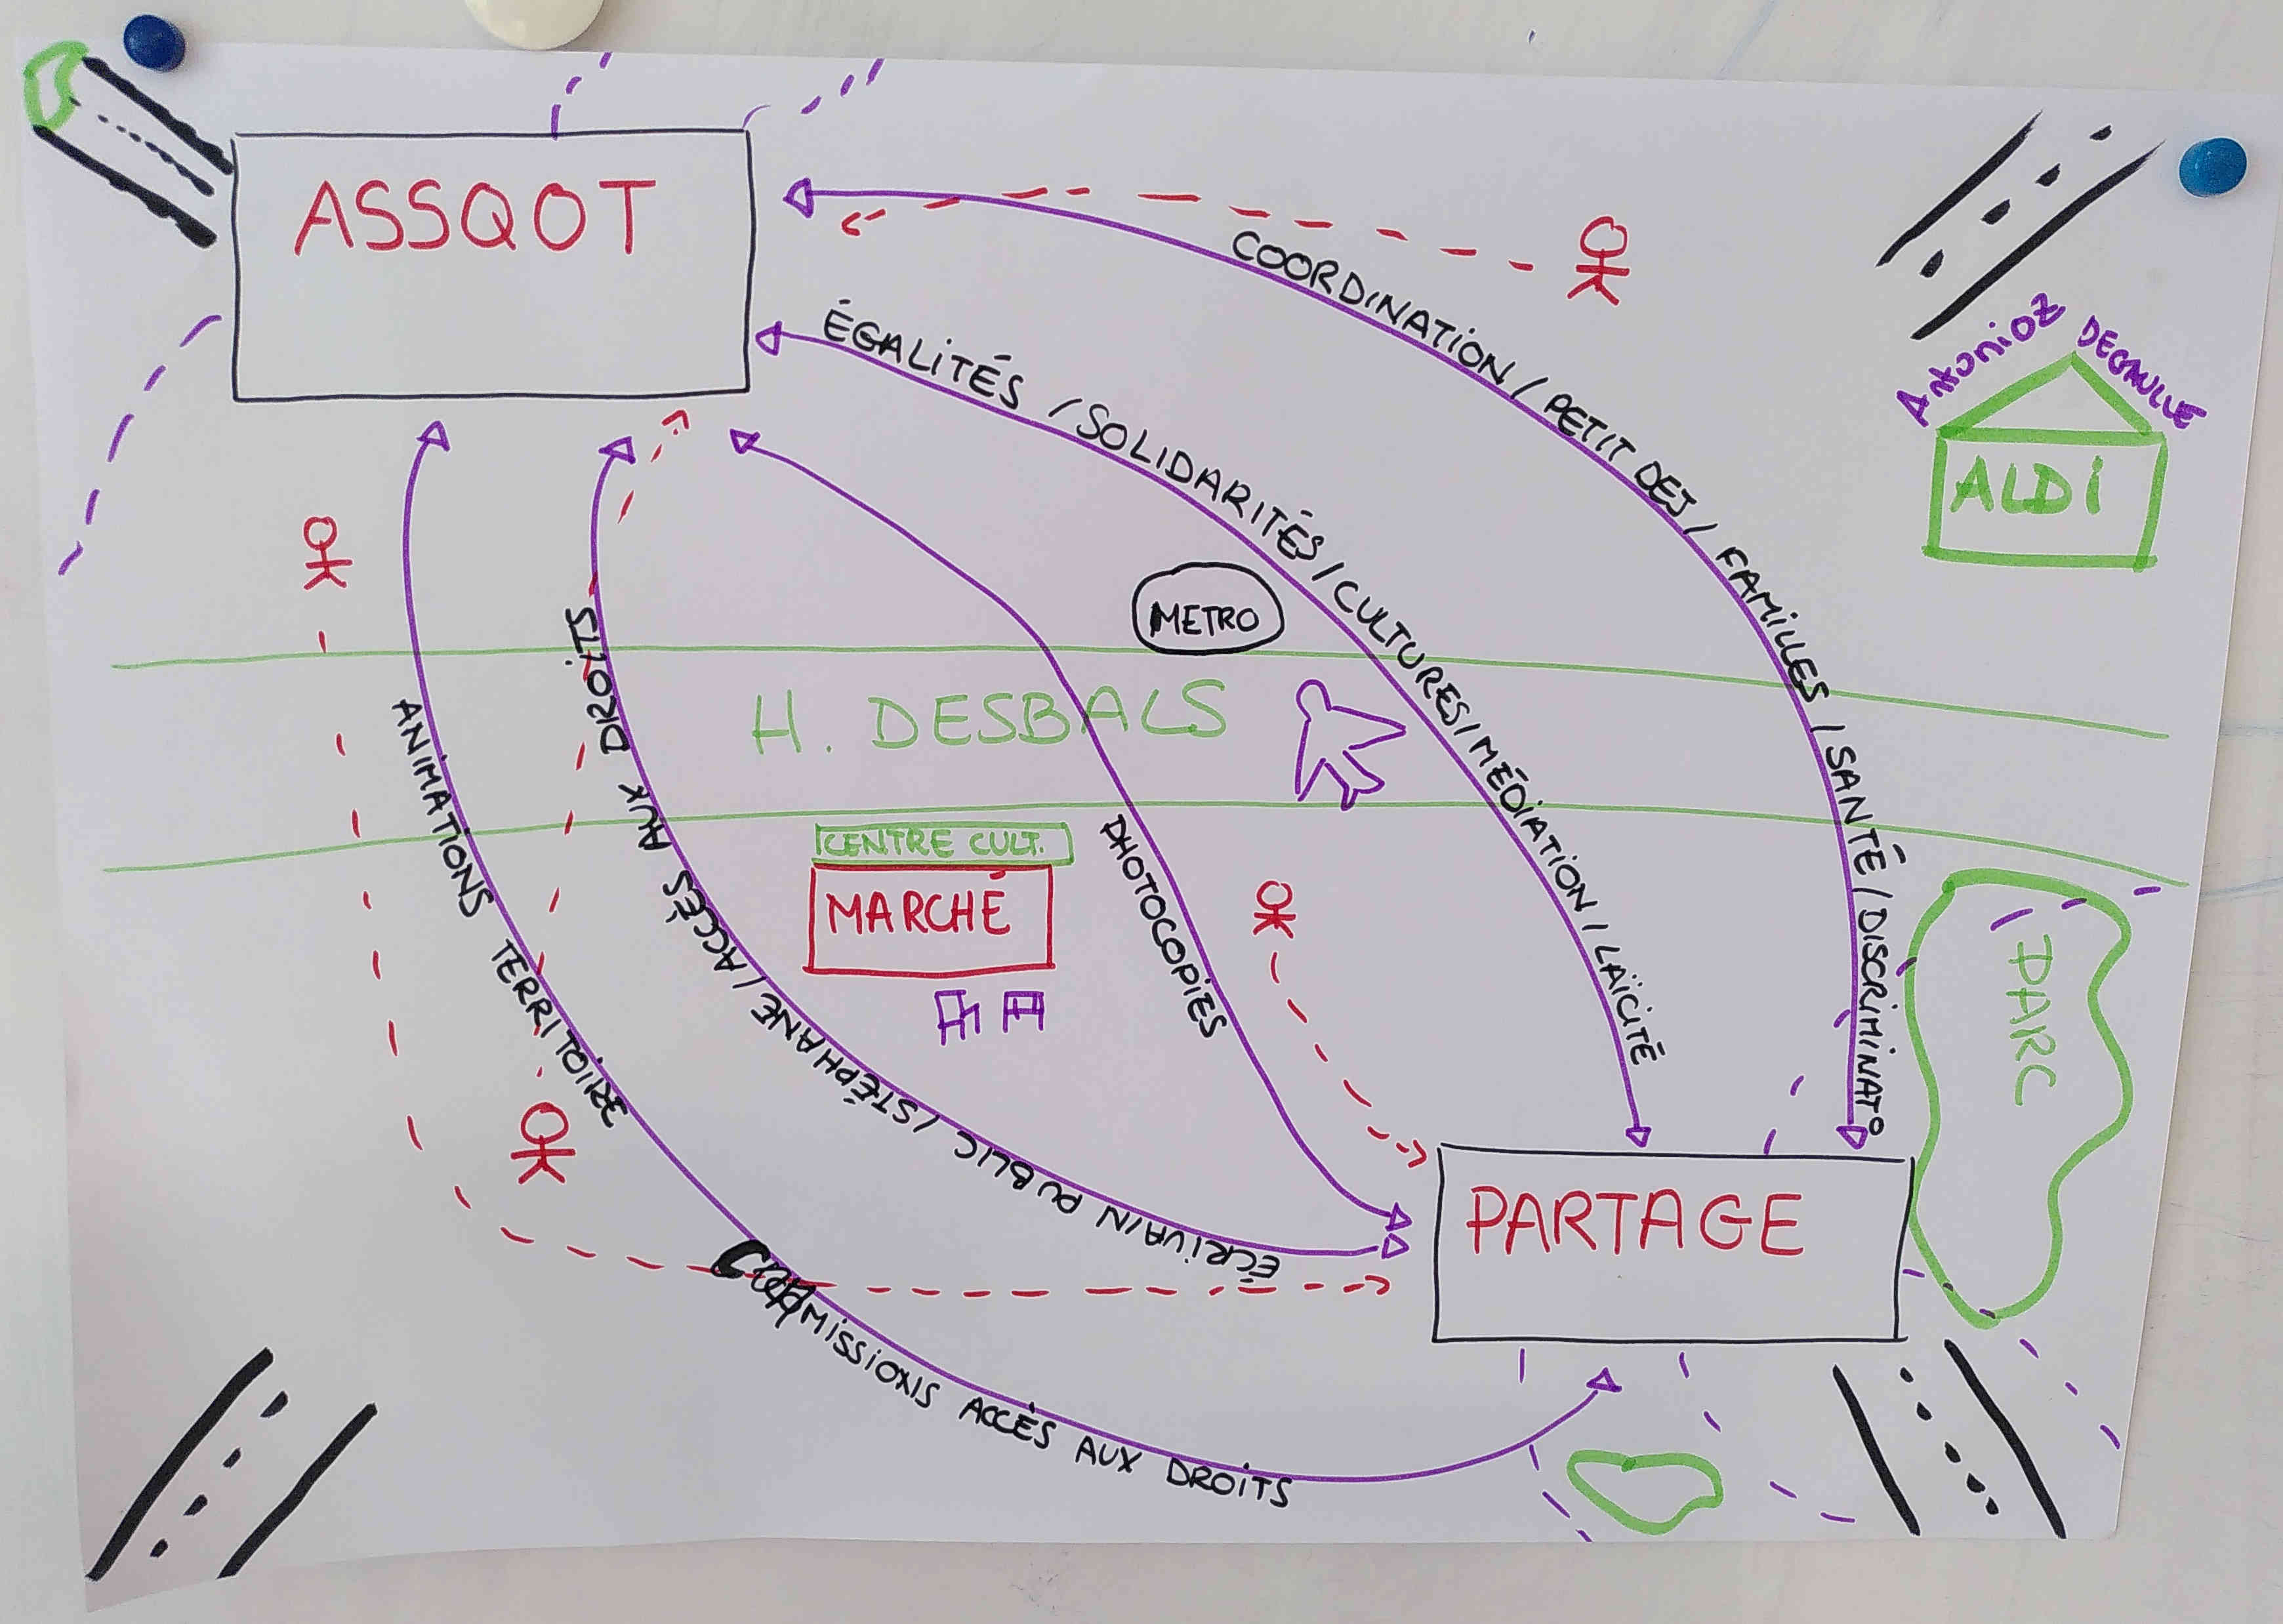 ASSQOT
COORDINATION / PETIT DEJ / FAMILLES / SANTÉ / DISCRIMINAT°
ÉGALITÉS / SOLIDARITÉS / CULTURES / MÉDIATION / LAÏCITÉ
AntoniOZ DEGAULLE
ALDI
METRO
H. DESBALS
CENTRE CULT.
MARCHÉ
PHOTOCOPIES
ÉCRIVAIN PUBLIC / STÉPHANE / ACCÈS AUX DROITS
ANIMATIONS TERRITOIRE
COMMISSIONS ACCÈS AUX DROITS
PARC
PARTAGE